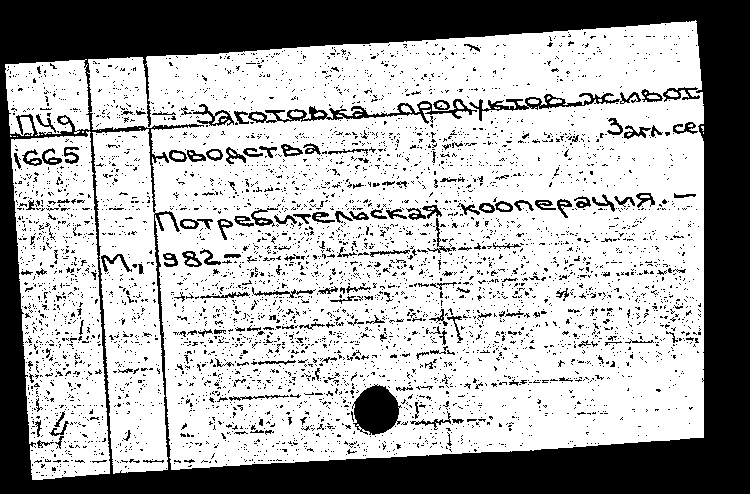 П49 Заготовка продуктов живот-
Загл. сер
1665 новодства
Потребительская кооперация. —
М., 1982 —
4